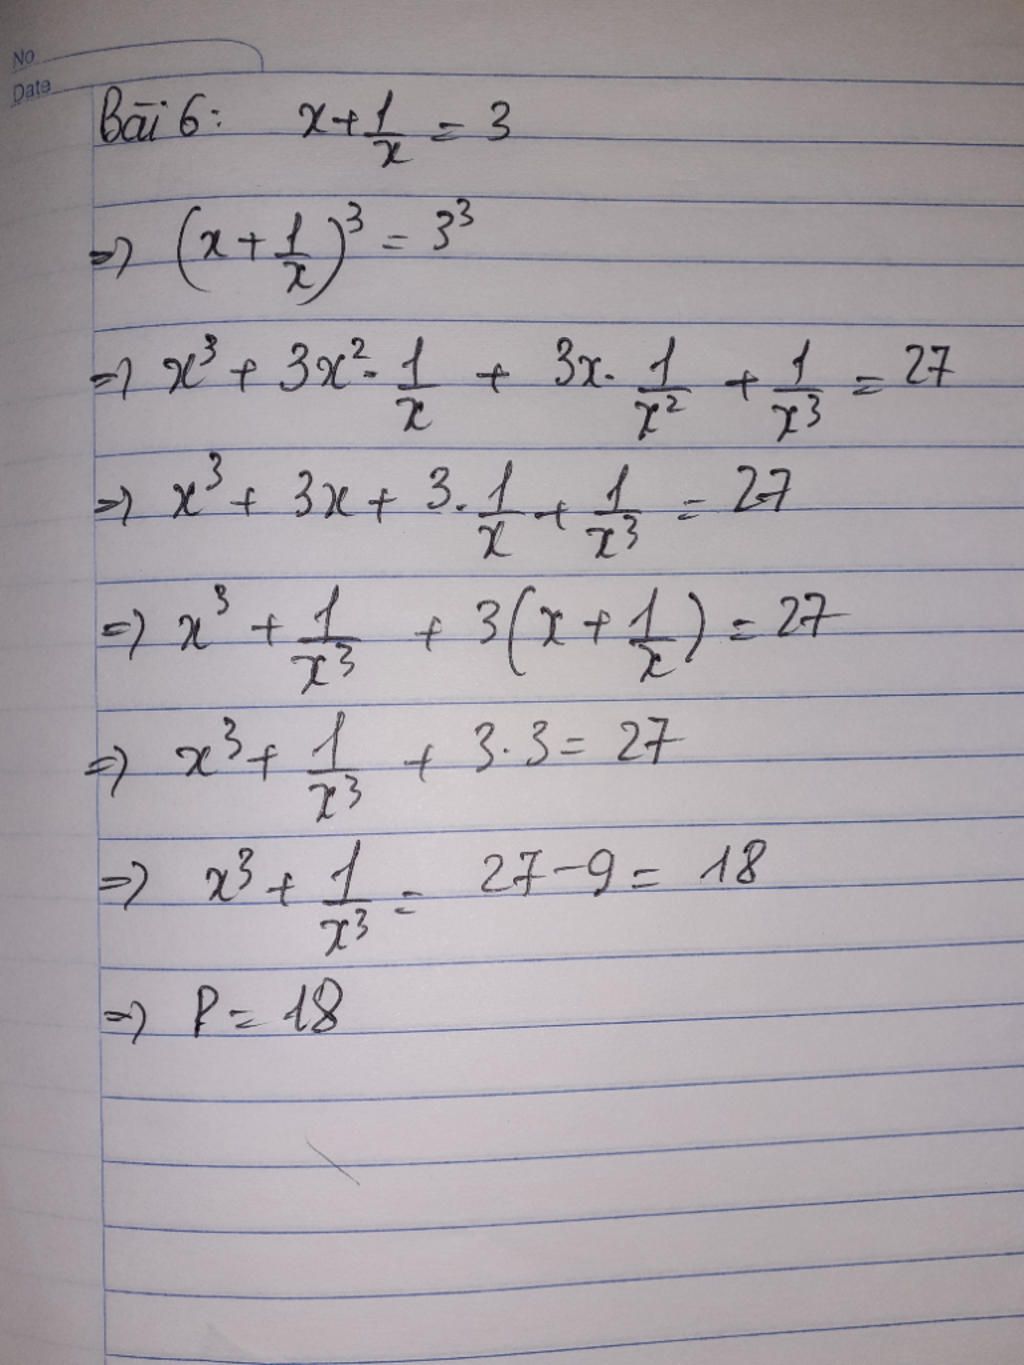 No
Date
Bài 6: x + 1/x = 3
=> (x + 1/x)³ = 3³
=> x³ + 3x² · 1/x + 3x · 1/x² + 1/x³ = 27
=> x³ + 3x + 3 · 1/x + 1/x³ = 27
=> x³ + 1/x³ + 3(x + 1/x) = 27
=> x³ + 1/x³ + 3 · 3 = 27
=> x³ + 1/x³ = 27 - 9 = 18
=> P = 18